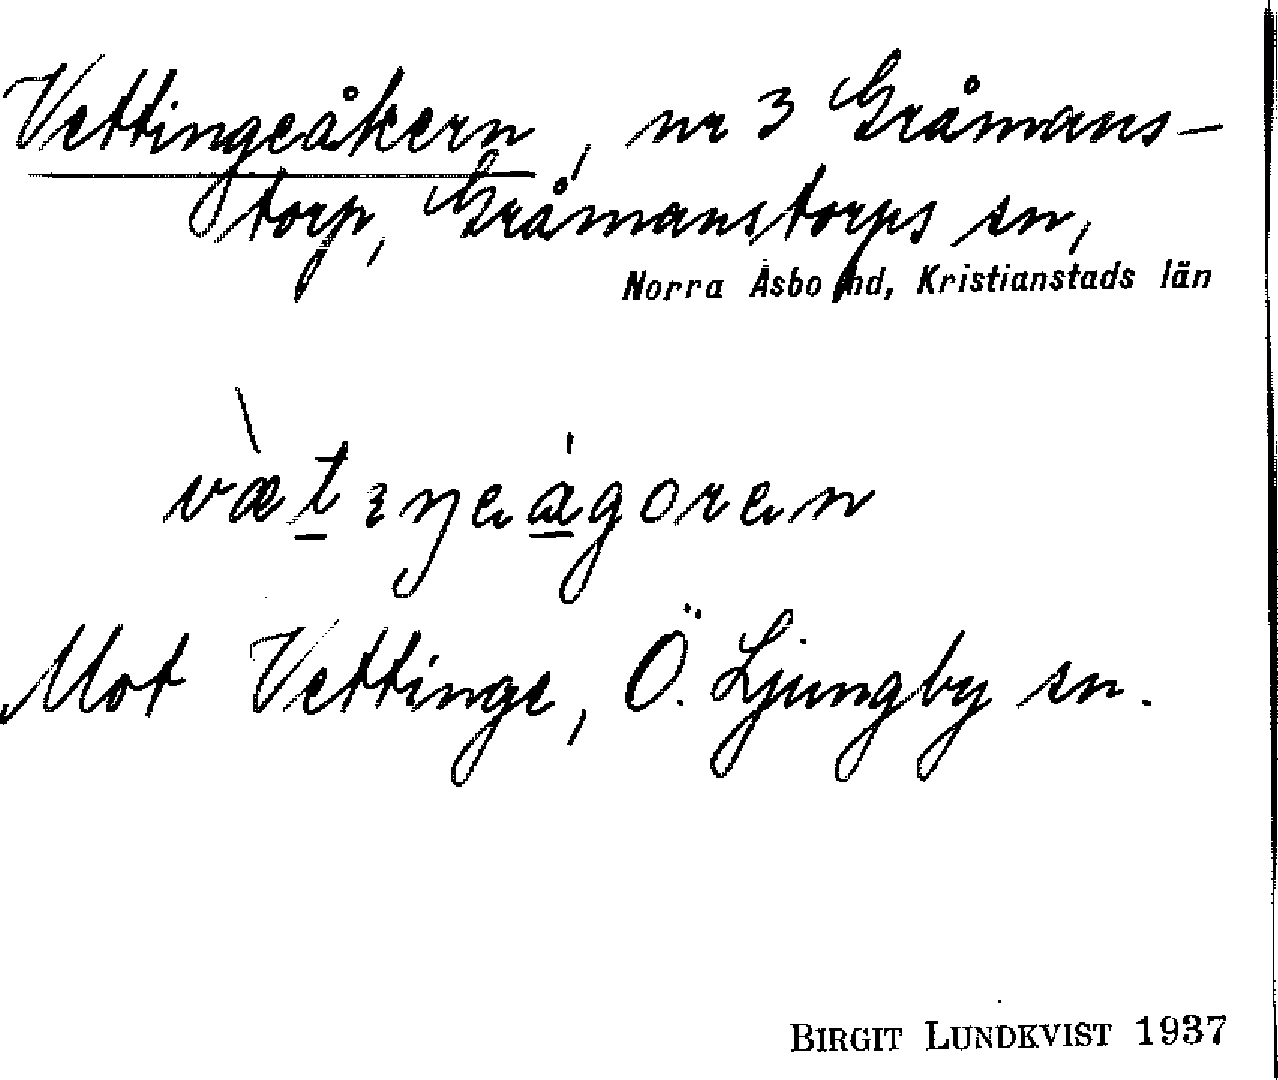 Vettingeåkern, nr 3 Gråmans-
torp, Gråmanstorps sn,
Norra Åsbo hd, Kristianstads län
Mot Vettinge, Ö. Ljungby sn.
BIRGIT LUNDKVIST 1937